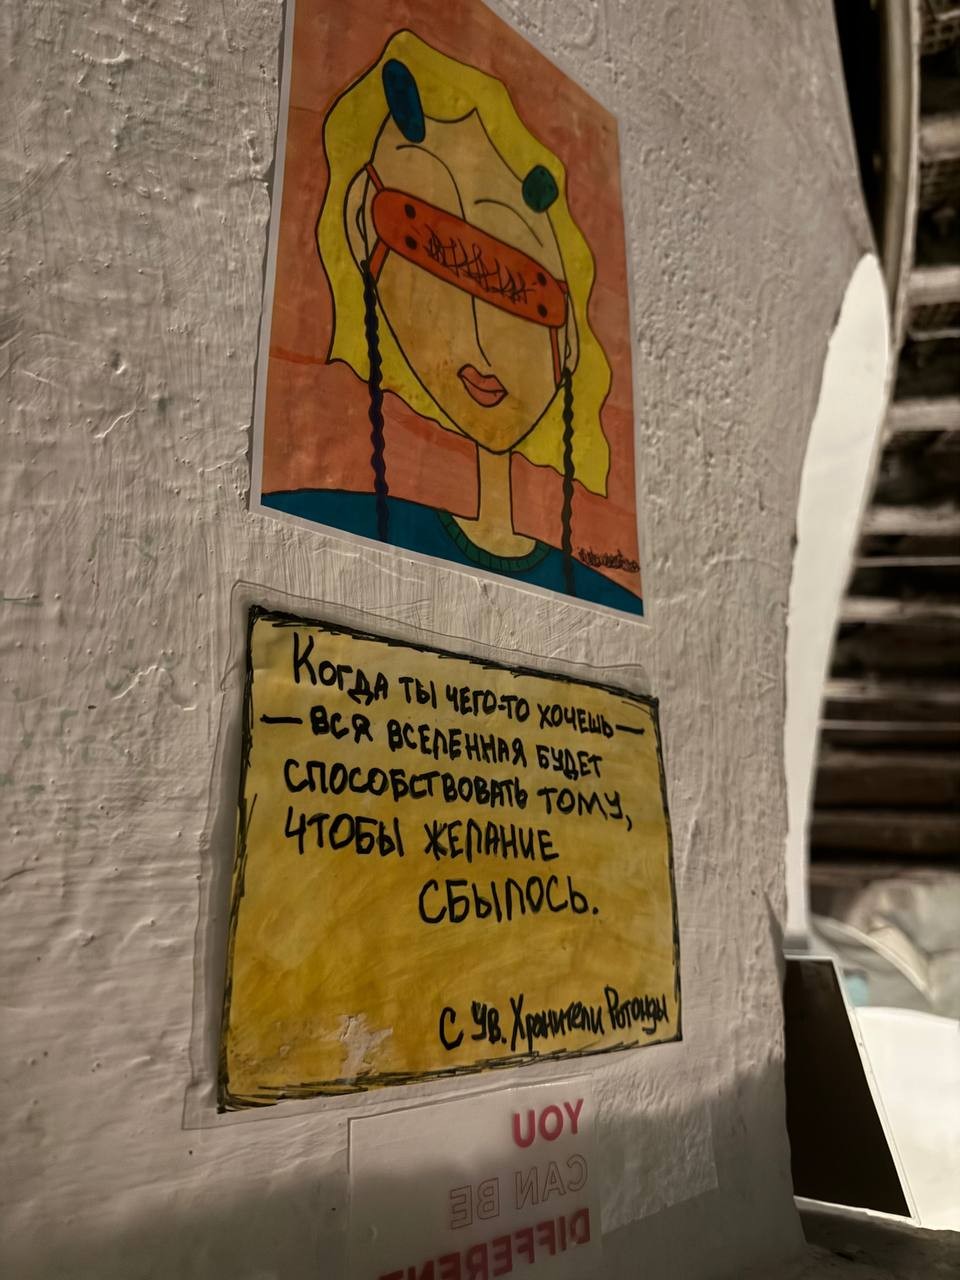 Когда ты чего-то хочешь—
—вся вселенная будет
способствовать тому,
чтобы желание
сбылось.
С ув. Хранители Ротонды
YOU
CAN BE
DIFFERENT